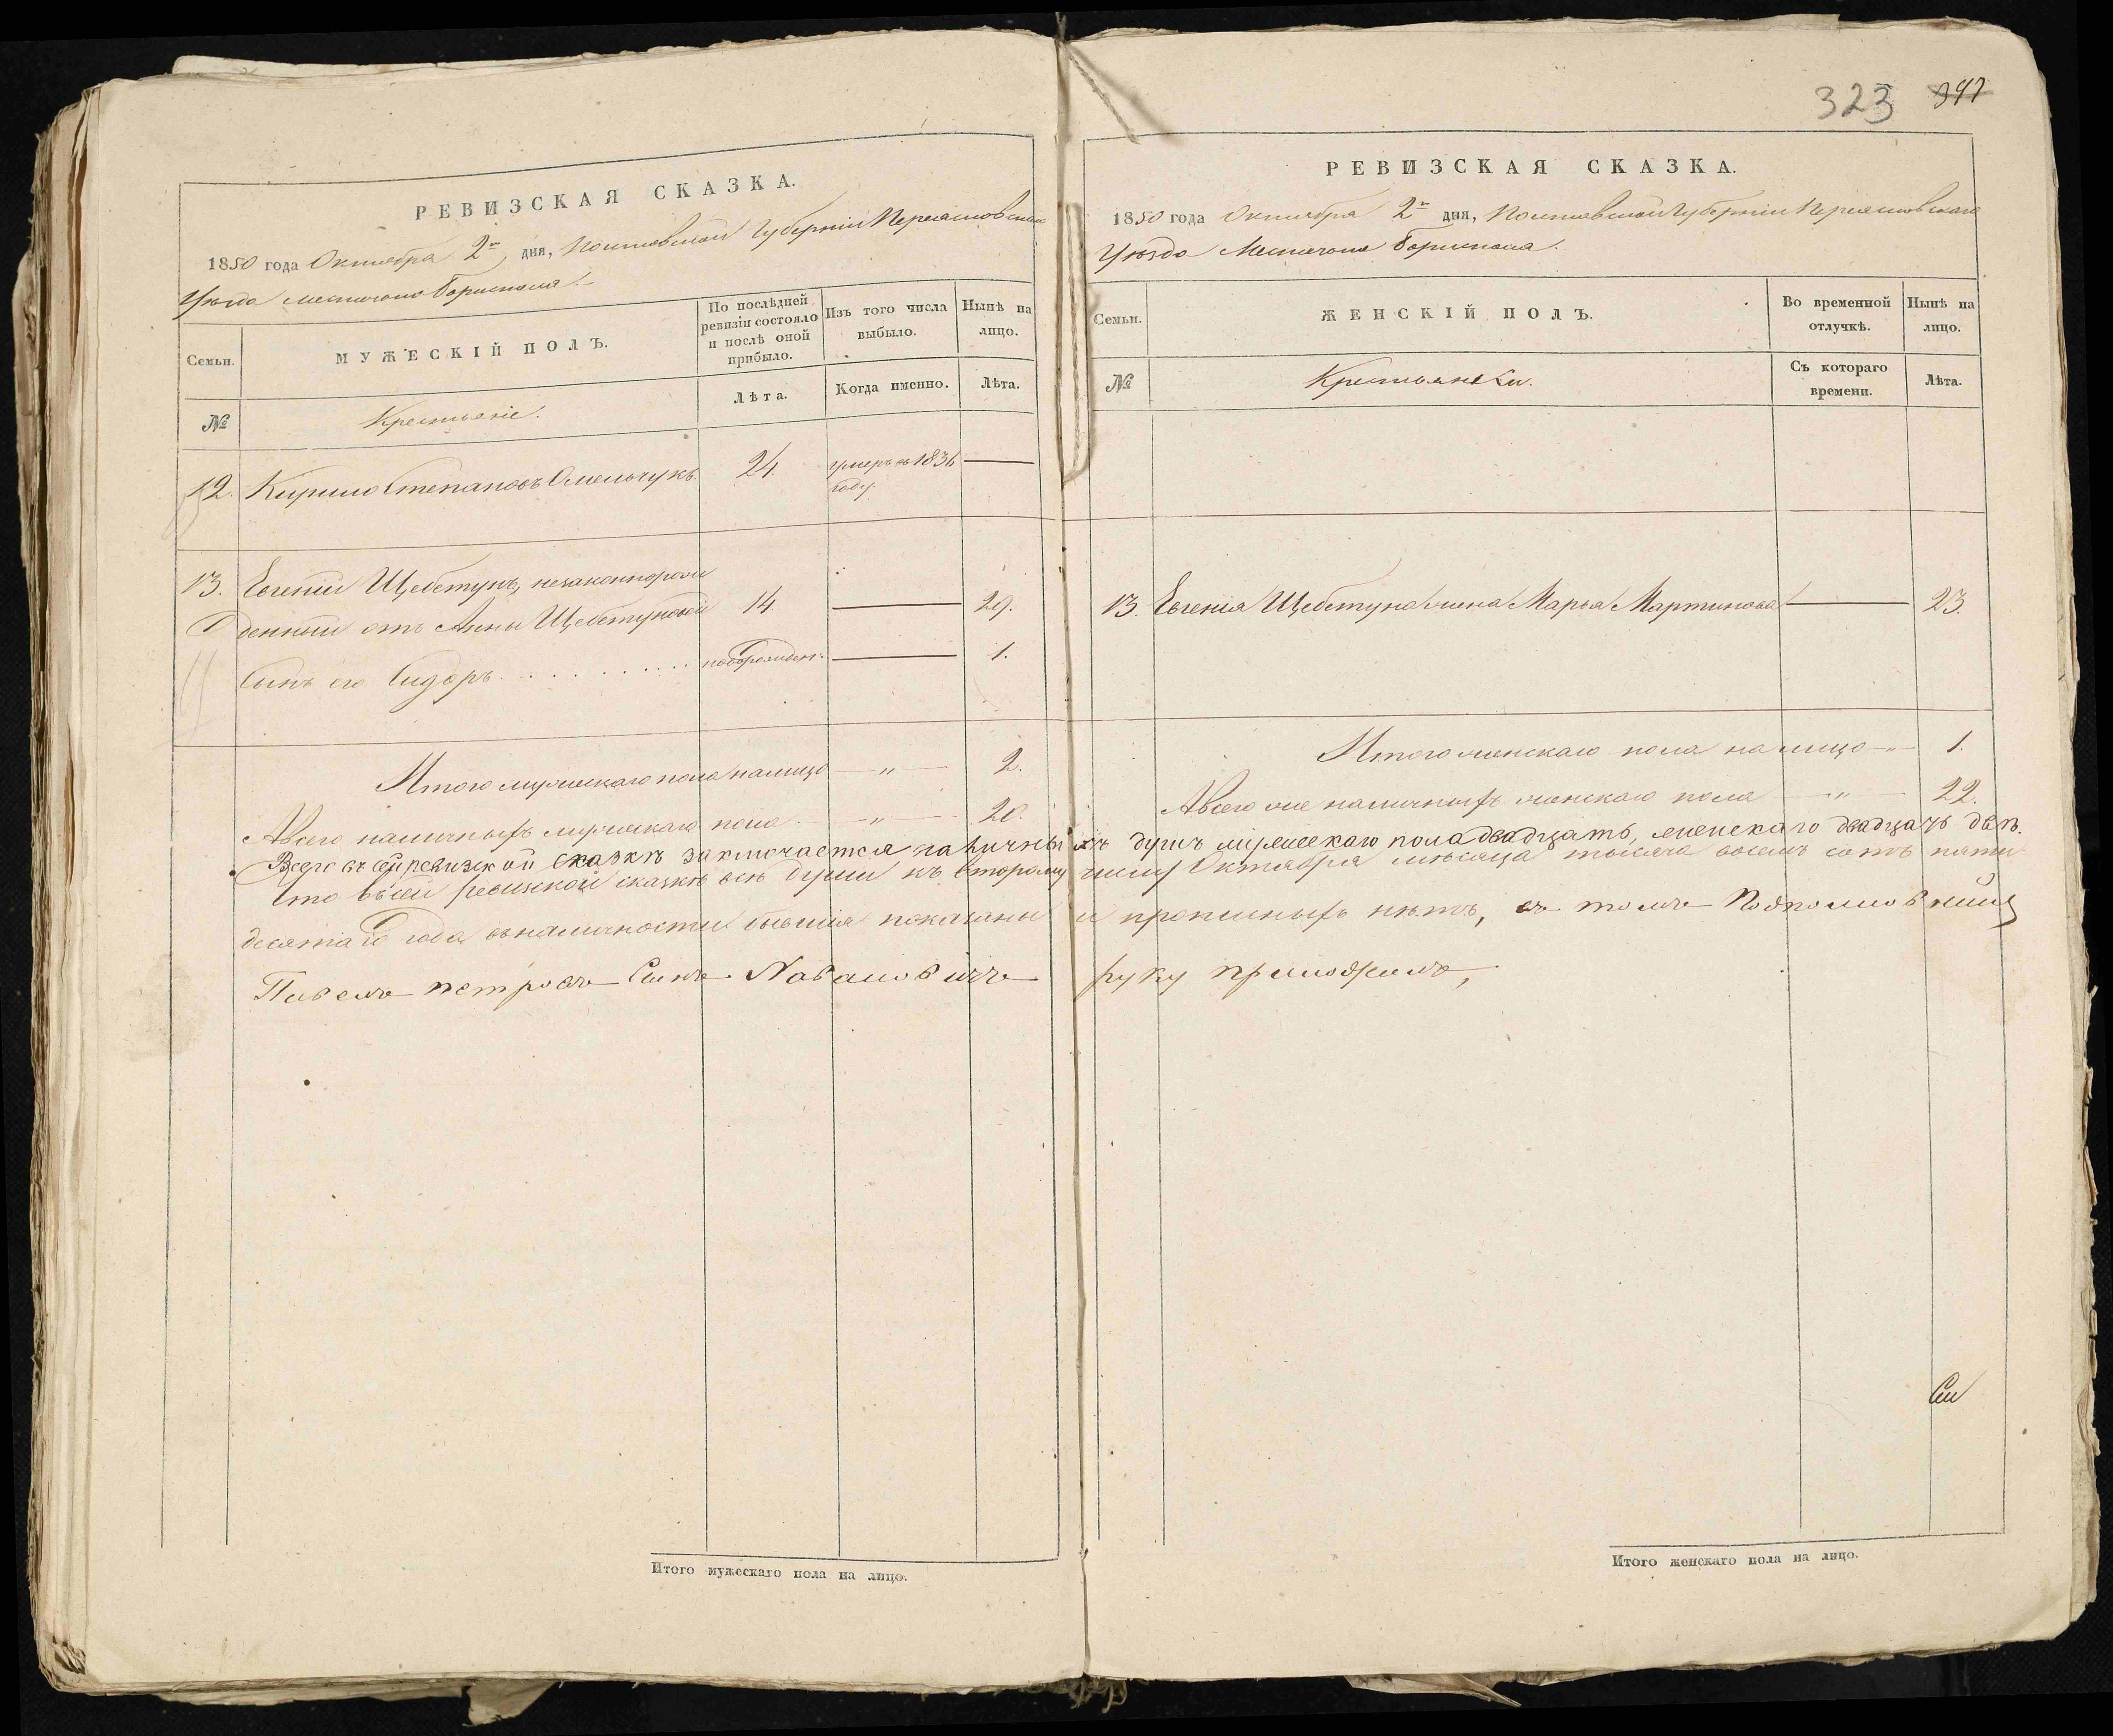 323 347
РЕВИЗСКАЯ СКАЗКА.
1850 года Октября 2го дня, Полтавской Губерніи Переяславскаго
Уезда местечка Борисполя.
Семьи. МУЖЕСКІЙ ПОЛЪ. По послѣдней ревизіи состояло и послѣ оной прибыло. Изъ того числа выбыло. Нынѣ на лицо.
№ Крестьяніе. Лѣта. Когда именно. Лѣта.
12. Кирило Степановъ Омельчукъ 24. умеръ въ 1836 году. —
13. Евгений Щебетунъ, незаконнорож
денный отъ Анны Щебетуновой 14. — 29.
Сынъ его Сидоръ . . . . . . . . . новорожден: — 1.
Итого мужескаго пола налицо — „ — 2.
А всего наличныхъ мужскаго пола — „ — 20.
РЕВИЗСКАЯ СКАЗКА.
1850 года Октября 2го дня, Полтавской Губерніи Переяславскаго
Уезда Местечка Борисполя.
Семьи. ЖЕНСКІЙ ПОЛЪ. Во временной отлучкѣ. Нынѣ на лицо.
№ Крестьянки. Съ котораго времени. Лѣта.
13. Евгенія Щебетуна жена Марья Мартинова — 23.
Итого женскаго пола на лицо — „ — 1.
А всего же наличныхъ женскаго пола — „ — 22.
Всего въ сей ревизской сказкѣ заключается наличныхъ душъ мужескаго пола двадцать, женскаго двадцать двѣ.
Что въ сей ревизской сказкѣ все души къ второму числу Октября месяца тысяча восемь сотъ пяти
десятаго года въ наличности бывшія показаны и прописныхъ нѣтъ, въ томъ
Павелъ петровъ Сынъ руку приложилъ,
Си
Итого мужескаго пола на лицо.
Итого женскаго пола на лицо.